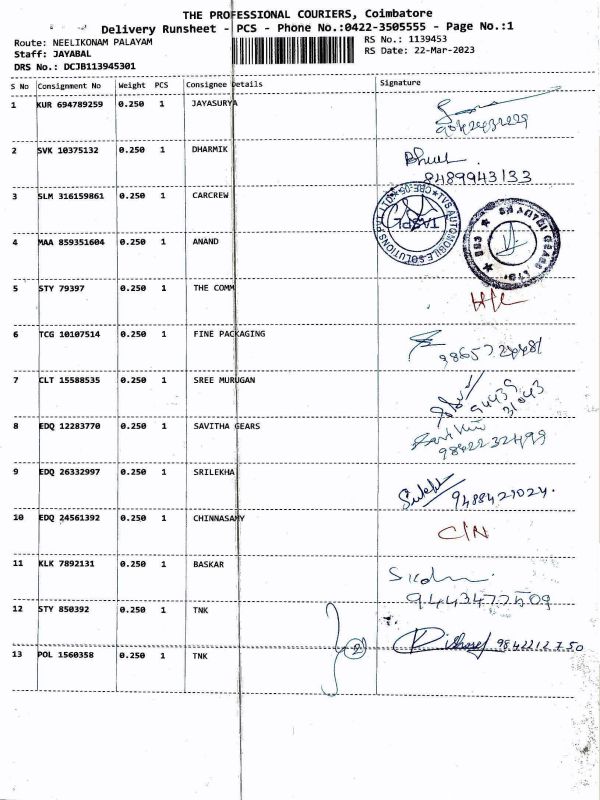 THE PROFESSIONAL COURIERS, Coimbatore
Delivery Runsheet - PCS - Phone No.:0422-3505555 - Page No.:1
Route: NEELIKONAM PALAYAM
RS No.: 1139453
Staff: JAYABAL
RS Date: 22-Mar-2023
DRS No.: DCJB113945301
S No Consignment No Weight PCS Consignee Details Signature
1 KUR 694789259 0.250 1 JAYASURYA
2 SVK 10375132 0.250 1 DHARMIK
8489943133
3 SLM 316159861 0.250 1 CARCREW
TVS AUTOMOBILE SOLUTIONS PVT LTD * CBE-05 *
TASPL
4 MAA 859351604 0.250 1 ANAND
5 STY 79397 0.250 1 THE COMM
6 TCG 10107514 0.250 1 FINE PACKAGING
7 CLT 15588535 0.250 1 SREE MURUGAN
94439
31043
8 EDQ 12283770 0.250 1 SAVITHA GEARS
9842232499
9 EDQ 26332997 0.250 1 SRILEKHA
9488421024.
10 EDQ 24561392 0.250 1 CHINNASAMY
C/N
11 KLK 7892131 0.250 1 BASKAR
9443477509
12 STY 850392 0.250 1 TNK
2
13 POL 1560358 0.250 1 TNK
9842212750